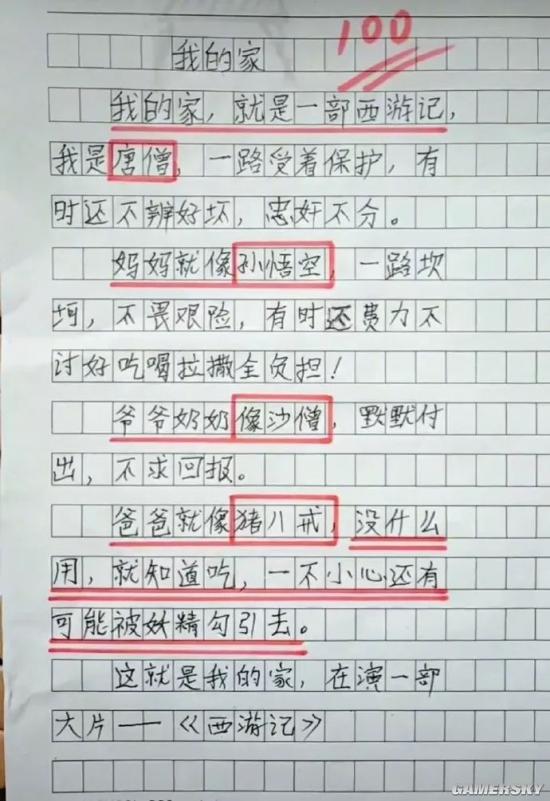 100
我的家
我的家，就是一部西游记，
我是唐僧，一路受着保护，有
时还不辨好坏，忠奸不分。
妈妈就像孙悟空，一路坎
坷，不畏艰险，有时还费力不
讨好吃喝拉撒全负担！
爷爷奶奶像沙僧，默默付
出，不求回报。
爸爸就像猪八戒，没什么
用，就知道吃，一不小心还有
可能被妖精勾引去。
这就是我的家，在演一部
大片——《西游记》
GAMERSKY